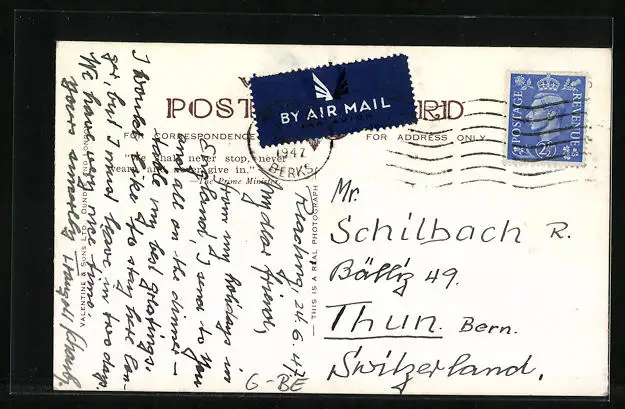 POST CARD
BY AIR MAIL
PAR AVION
FOR CORRESPONDENCE
FOR ADDRESS ONLY
"We shall never stop, never
weary and never give in."
—The Prime Minister
1947
BERKS
POSTAGE
REVENUE
2½D
VALENTINE & SONS LTD., DUNDEE AND LONDON
— THIS IS A REAL PHOTOGRAPH
Reading, 24. 6. 47
My dear friends,
From my holidays in
England, I send to you
and all on the dinner-
table my best greetings.
I would like to stay here lon-
ger, but I must leave in two days.
We have very fine time.
Yours sincerely
Mr.
Schilbach R.
Bälliz 49.
Thun. Bern.
Switzerland.
G-BE